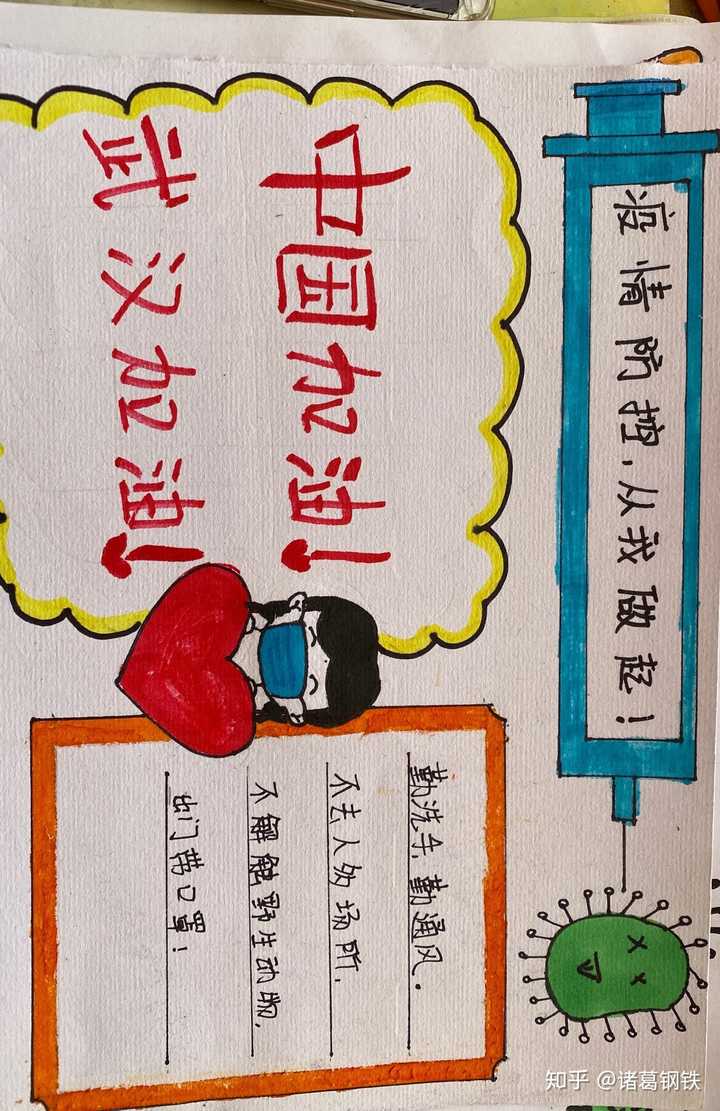 疫情防控，从我做起！
中国加油！
武汉加油！
勤洗手，勤通风。
不去人多场所，
不解触野生动物，
出门带口罩！
知乎 @诸葛钢铁